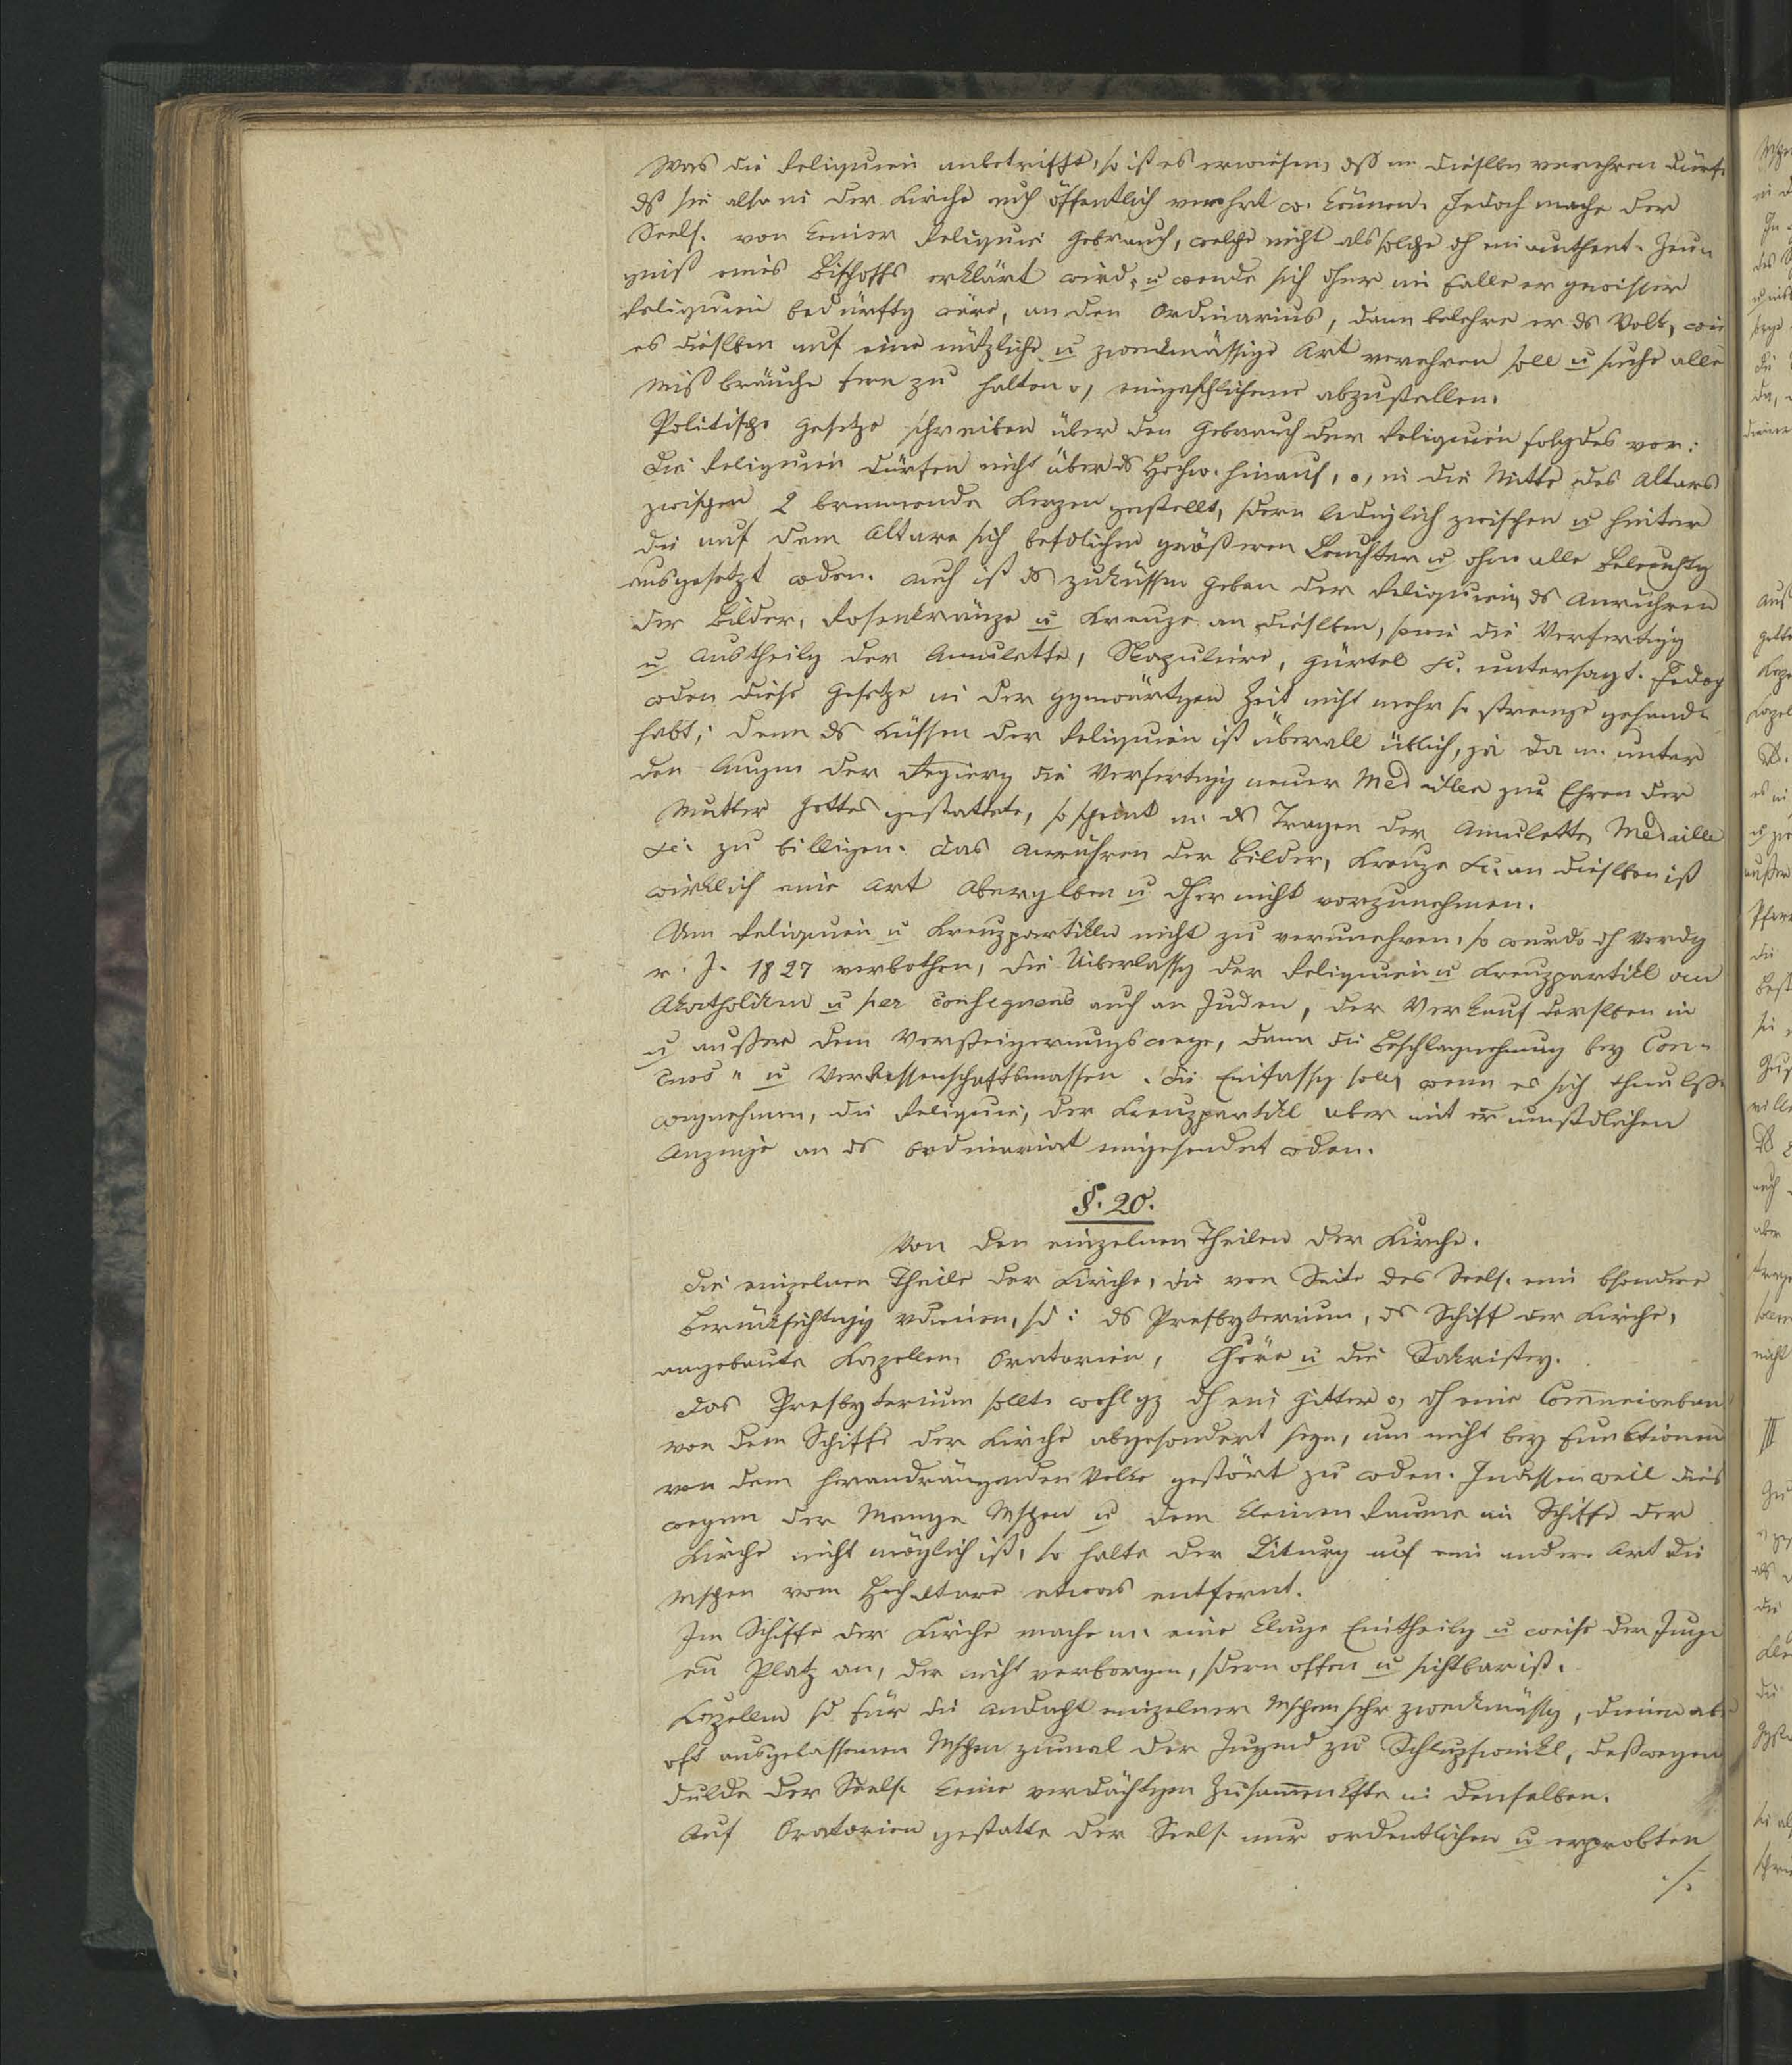 Was die Reliquien anbetrifft, so ist es erwiesen, dß m. dieslben verehren dürfe
ds sie also in der Kirche auch öffentlich verehrt w. können. Jedoch mache der
Seels. von keiner Reliquie Gebrauch, welche nicht als solche dh ein authent. Zeug
gniß eines Bischoffs erklärt wird, u wende sich dher im Falle er gewisser
Reliquien bedürftg wäre, an den Ordinarius, dann belehre er ds Volk, wie
es dieslben auf eine nützliche u zweckmässige Art verehren soll u suche alle
Mißbräuche fern zu halten o, eingeschlichene abzustellen.
Politische Gesetze schreiben über den Gebrauch der Reliquien folgdes vor:
Die Reliquien dürfen nicht über ds Hochw. hinauf, o, in die Mitte des Altars
zwischen 2 brennende Kerzen gestellt, sdern lediglich zwischen u hinter
die auf dem Altare sich befdlichen größeren Leuchter u ohne alle Beleuchtg
ausgesetzt wden. Auch ist ds zuküssen geben der Reliquien, ds Anrühren
der Bilder, Rosenkränze u Kreuze an dieslben, sowie die Verfertigg
u Austheilg der Amulette, Skapuliere, Gürtel &c. untersagt. Jedoch
wden diese Gesetze in der ggenwärtigen Zeit nicht mehr so strenge gehand-
habt; denn ds Küssen der Reliquien ist überall üblich, ja da m. unter
den Augen der Regierg die Verfertigg neuer Medaillen zur Ehren der
Mutter Gottes gestattete, so scheint m. ds Tragen der Amulette, Medaille
&c. zu billigen. Das Anrühren der Bilder, Kreuze &c. an dieslben ist
wirklich eine Art Aberglben u dher nicht vorzunehmen.
Um Reliquien u Kreuzpartikeln nicht zu verunehren, so wurde dh Vordg
v. J. 1827 verbothen, die Überlassg der Reliquien u Kreuzpartikl an
Akatholiken u per consequens auch an Juden, der Verkauf derslben in
u außer dem Versteigerungswege, dann die Beschlagnehmung bey Con-
curs- u Verlassenschaftsmassen. Die Einfassg soll, wenn es sich thun lße
wegnehmen, die Reliquie, der Kreuzpartikl aber mit er umstdlichen
Anzeige an ds Ordinariat eingesendet wden.
§. 20.
Von den einzelnen Theilen der Kirche.
Die einzelnen Theile der Kirche, die von Seite des Seels. eine bsondere
Berücksichtigg vdienen, sd: ds Presbyterium, ds Schiff der Kirche,
angebaute Kapellen, Oratorien, Chöre u die Sakristey.
Das Presbyterium sollte wohl gz dh ein Gitter o, dh eine Com̅unionban
von dem Schiffe der Kirche abgesondert seyn, um nicht bey Funktionen
von dem herandrängenden Volke gestört zu wden. Indessen weil dies
wegen der Menge Mschen u dem kleinen Raume im Schiffe der
Kirche nicht möglich ist, so halte der Liturg auf eine andere Art die
Mschen vom Hochaltare etwas entfernt.
Im Schiffe der Kirche mache m. eine kluge Eintheilg u weise der Juge
en Platz an, der nicht verborgen, sdern offen u sichtbar ist.
Kapellen sd für die Andacht einzelner Mschen sehr zweckmässg, dienen abe
oft ausgelassenen Mschen zumal der Jugend zu Schlupfwinkl, deßwegen
dulde der Seels. keine verdächtigen Zusam̅enkfte in denselben.
Auf Oratorien gestatte der Seels. nur ordentlichen u erprobten
./.